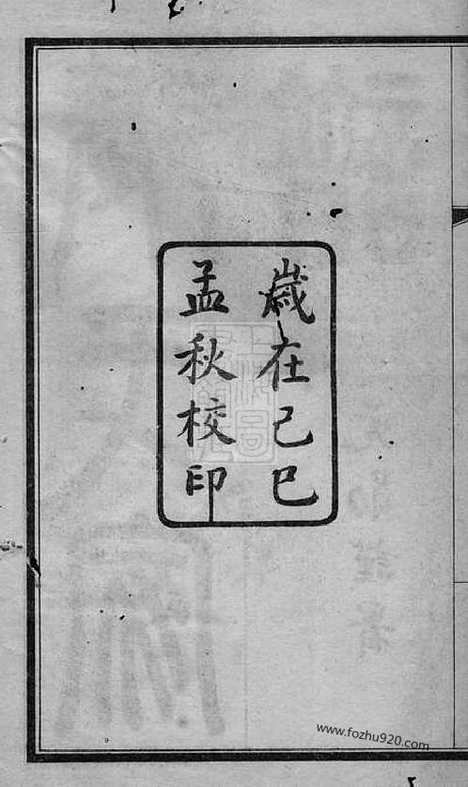 歲在己巳
孟秋校印
www.fozhu920.com